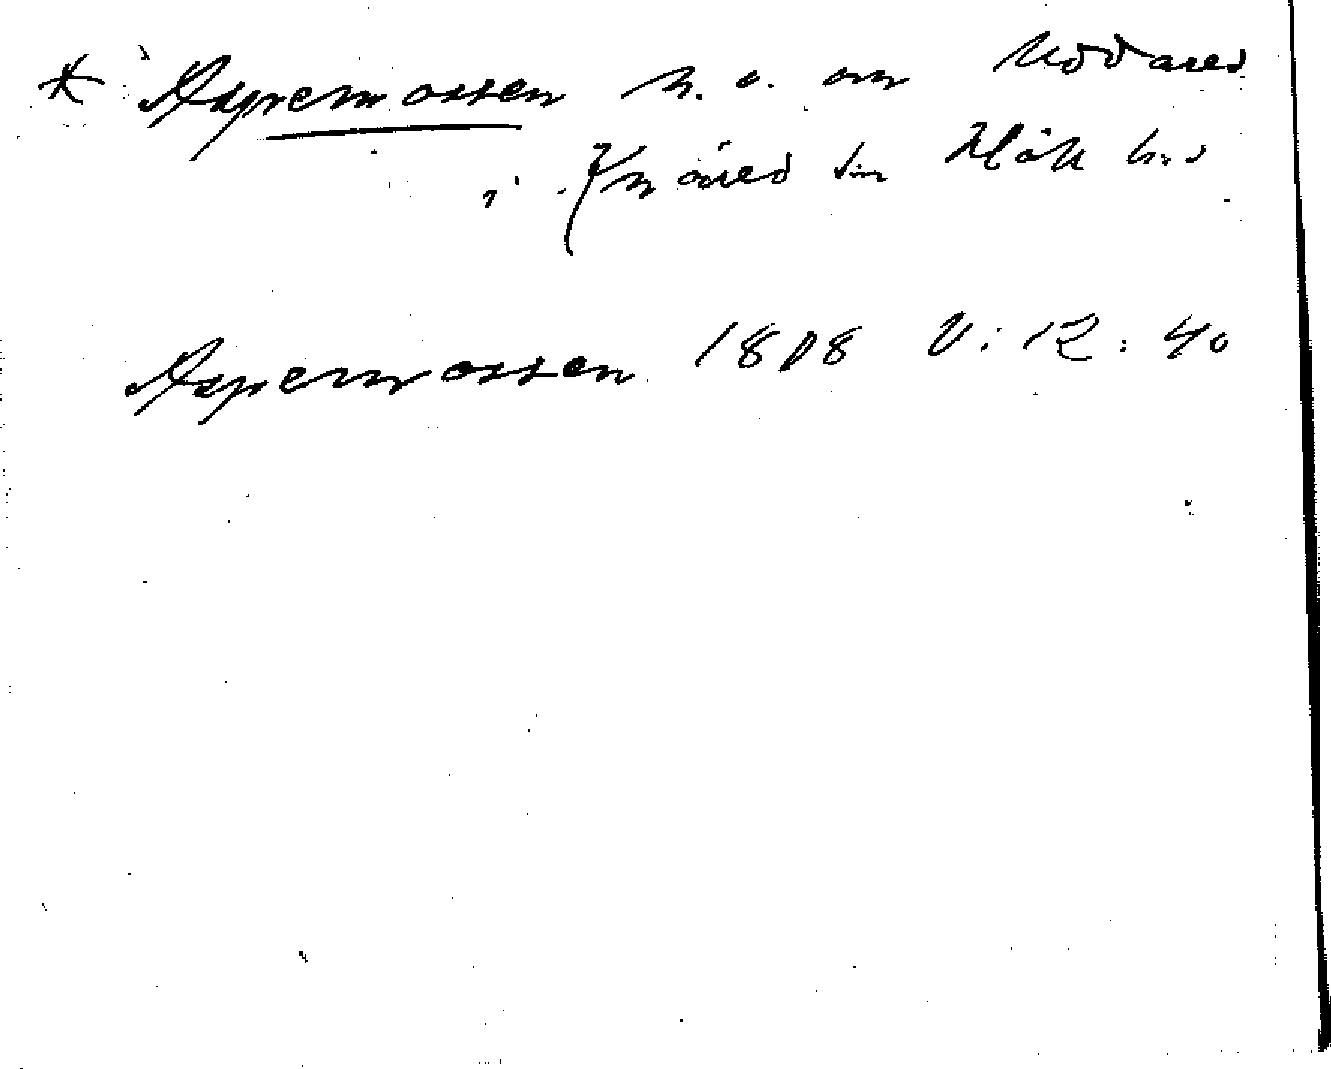 * Aspemossen n. o. om Uddared
i Knäred sn Hök hd
Aspemossen 1808 V: 12: 40